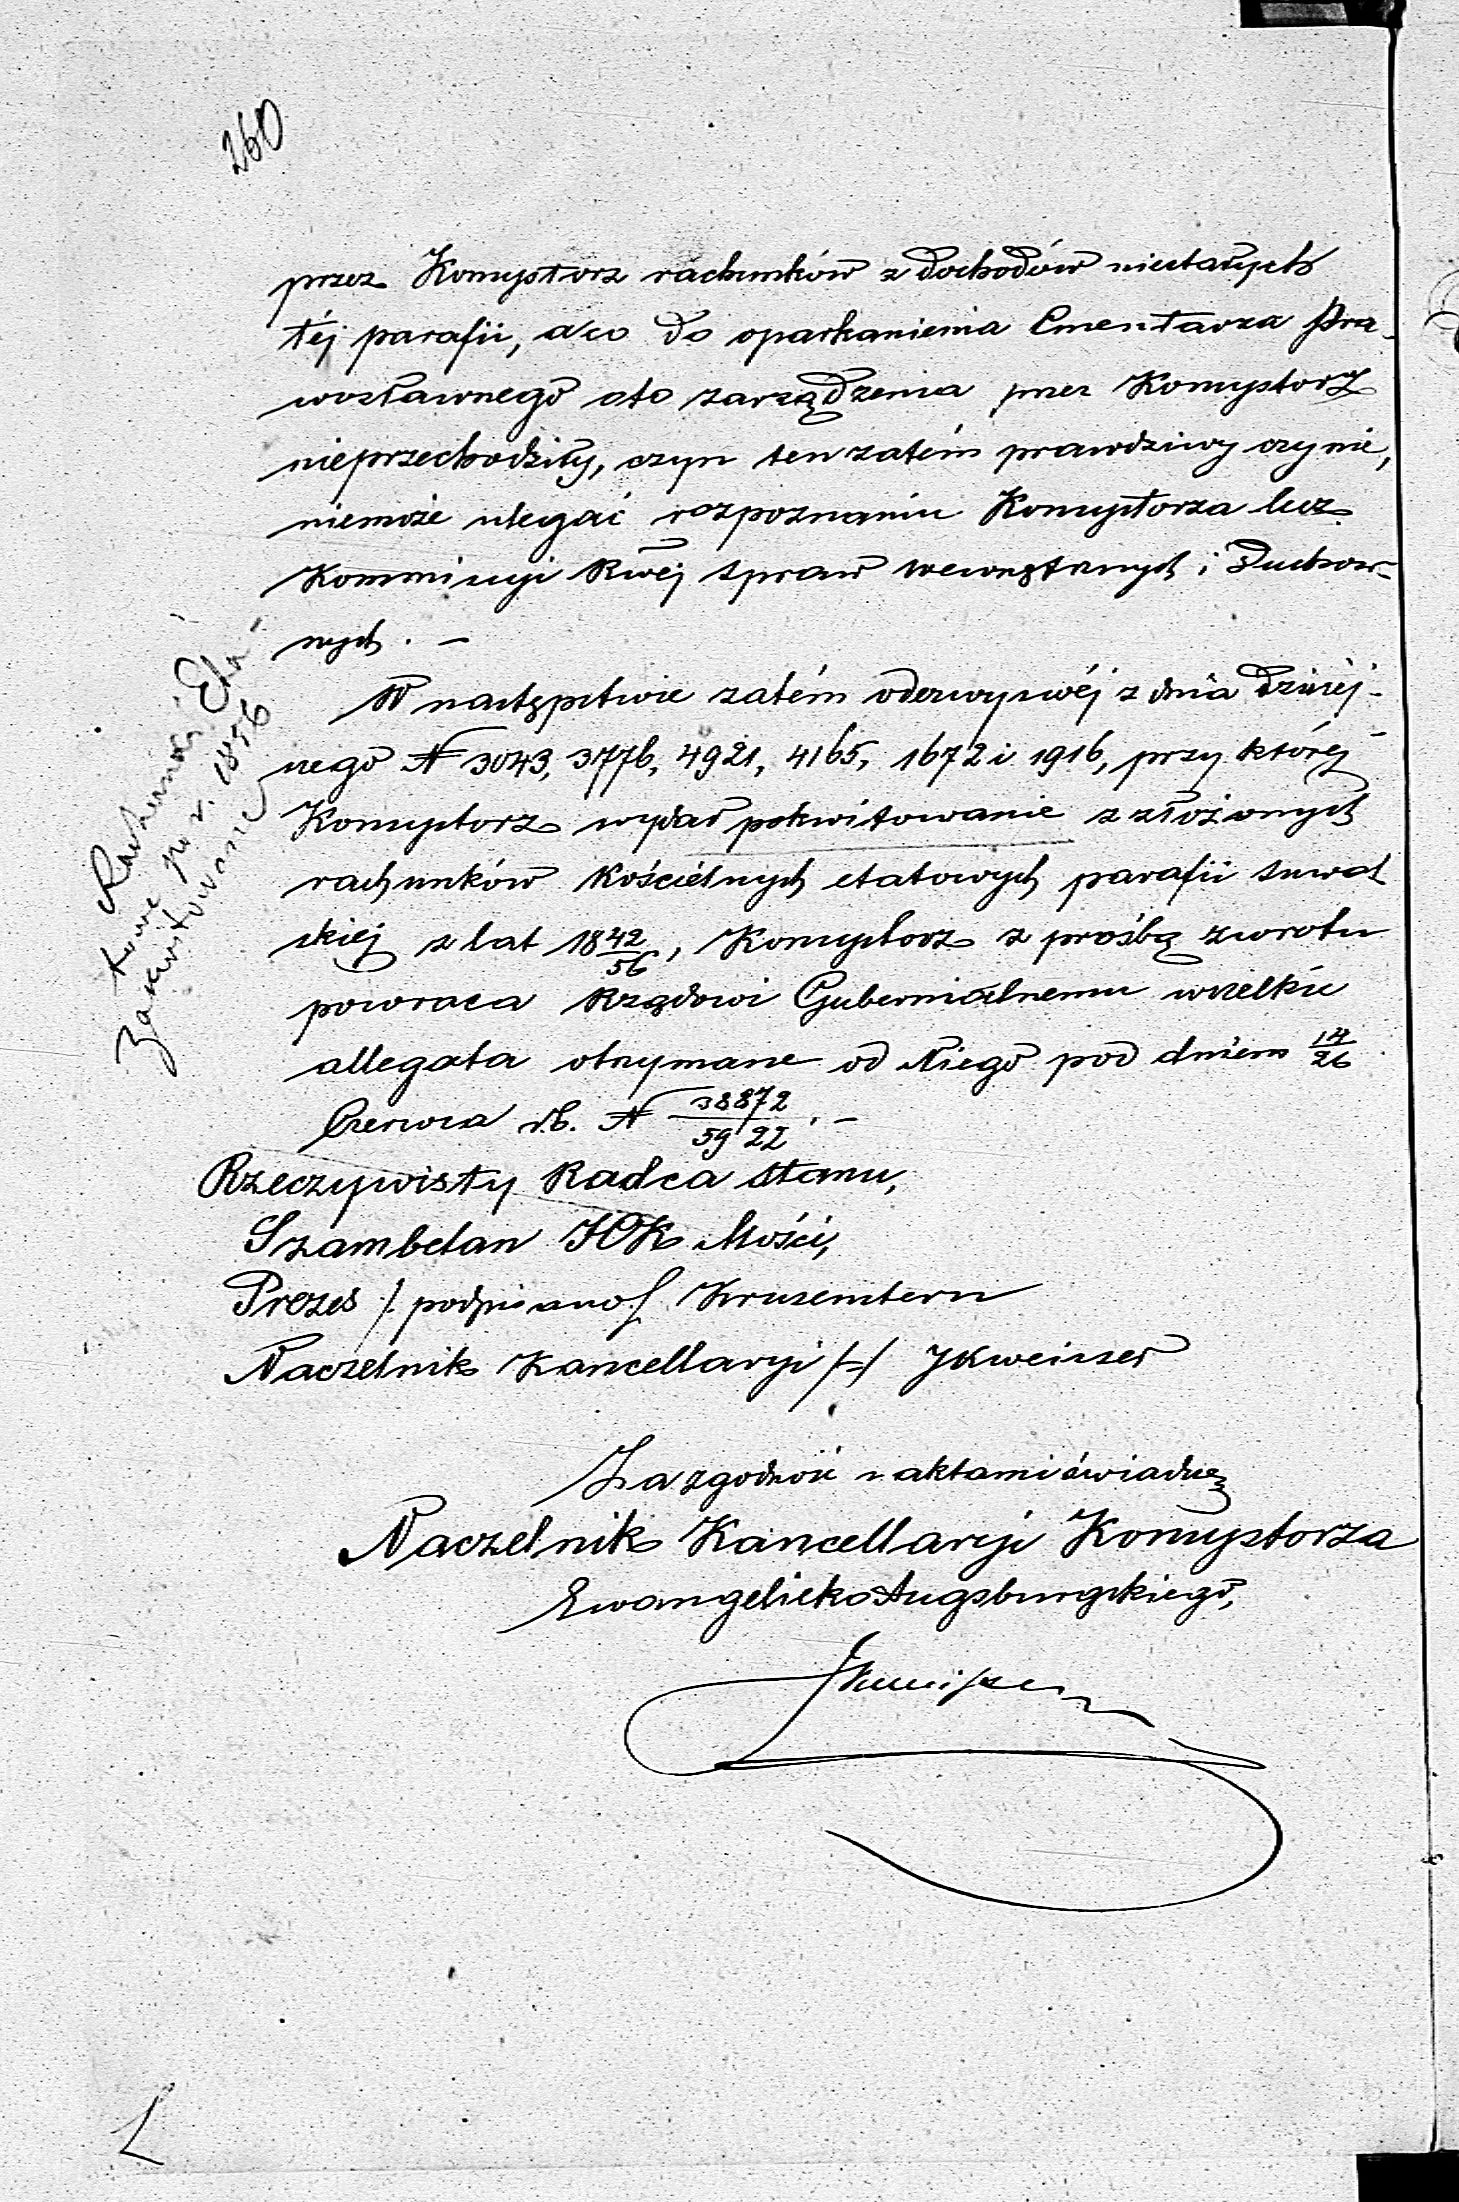 260
przez Konsystorz rachunków z dochodów niestałych
téj parafii, a co do oparkanienia Cmentarza Pra-
wosławnego oto zarządzenia przez Konsystorz
nieprzechodziły, czyn ten zatém prawdziwy czy nie,
niemoże ulegać rozpoznaniu Konsystorza lecz
Kommissyi Rwéj Spraw Wewnętrznych i Duchow-
nych. —
W następstwie zatém odezwy swéj z dnia dzisiej-
szego N 3043, 3776, 4921, 4165, 1672 i 1916, przy któréj
Konsystorz wydał pokwitowanie z złożonych
rachunków Kościelnych etatowych parafii Suwal
skiéj z lat 18 42/56, Konsystorz z prośbą zwrotu
powraca Rządowi Gubernialnemu wszelkie
allegata otrzymane od Niego pod dniem 14/26
Czerwca r.b. N 38872/5922. —
Rachunki Eta-
towe po r. 1856
Zakwitowane
Rzeczywisty Radca Stanu,
Szambelan JCK Mości,
Prezes /. podpisano ./ Krusenstern
Naczelnik Kancellaryi /-/ J Kweisser
Za zgodność z aktami świadczę
Naczelnik Kancellaryi Konsystorza
Ewangelicko Augsburgskiego,